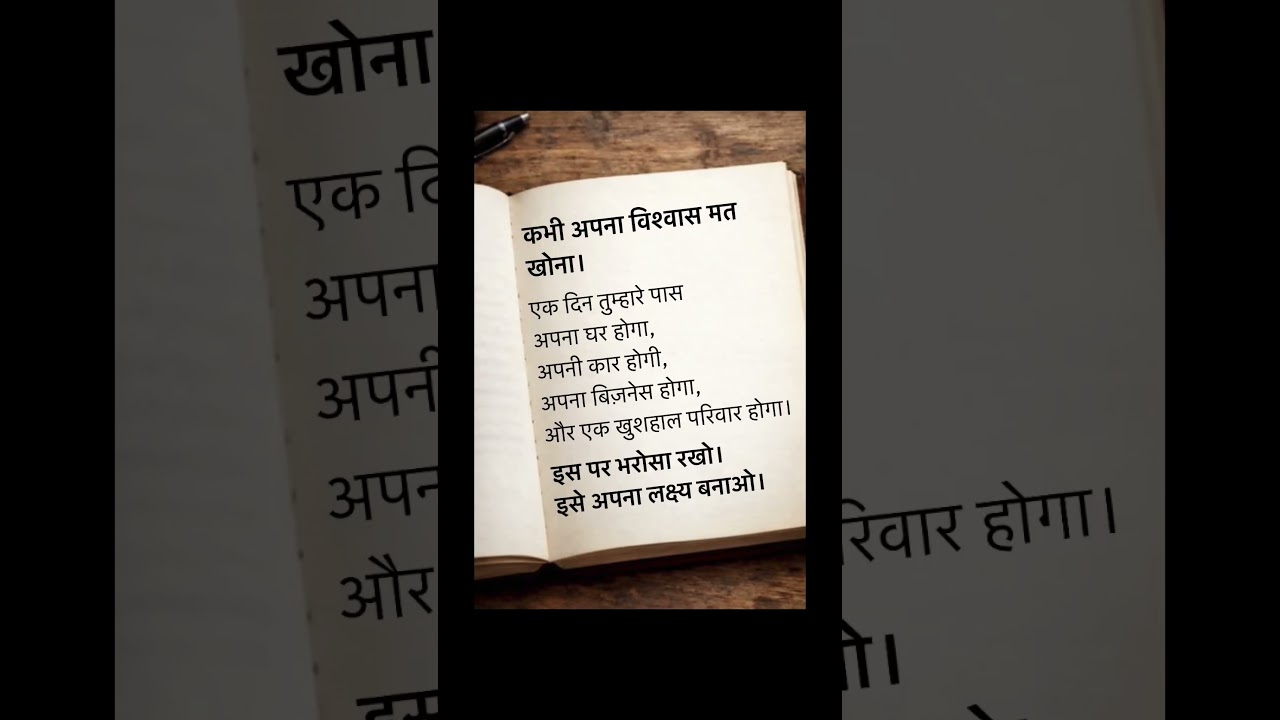 कभी अपना विश्वास मत
खोना।
एक दिन तुम्हारे पास
अपना घर होगा,
अपनी कार होगी,
अपना बिज़नेस होगा,
और एक खुशहाल परिवार होगा।
इस पर भरोसा रखो।
इसे अपना लक्ष्य बनाओ।